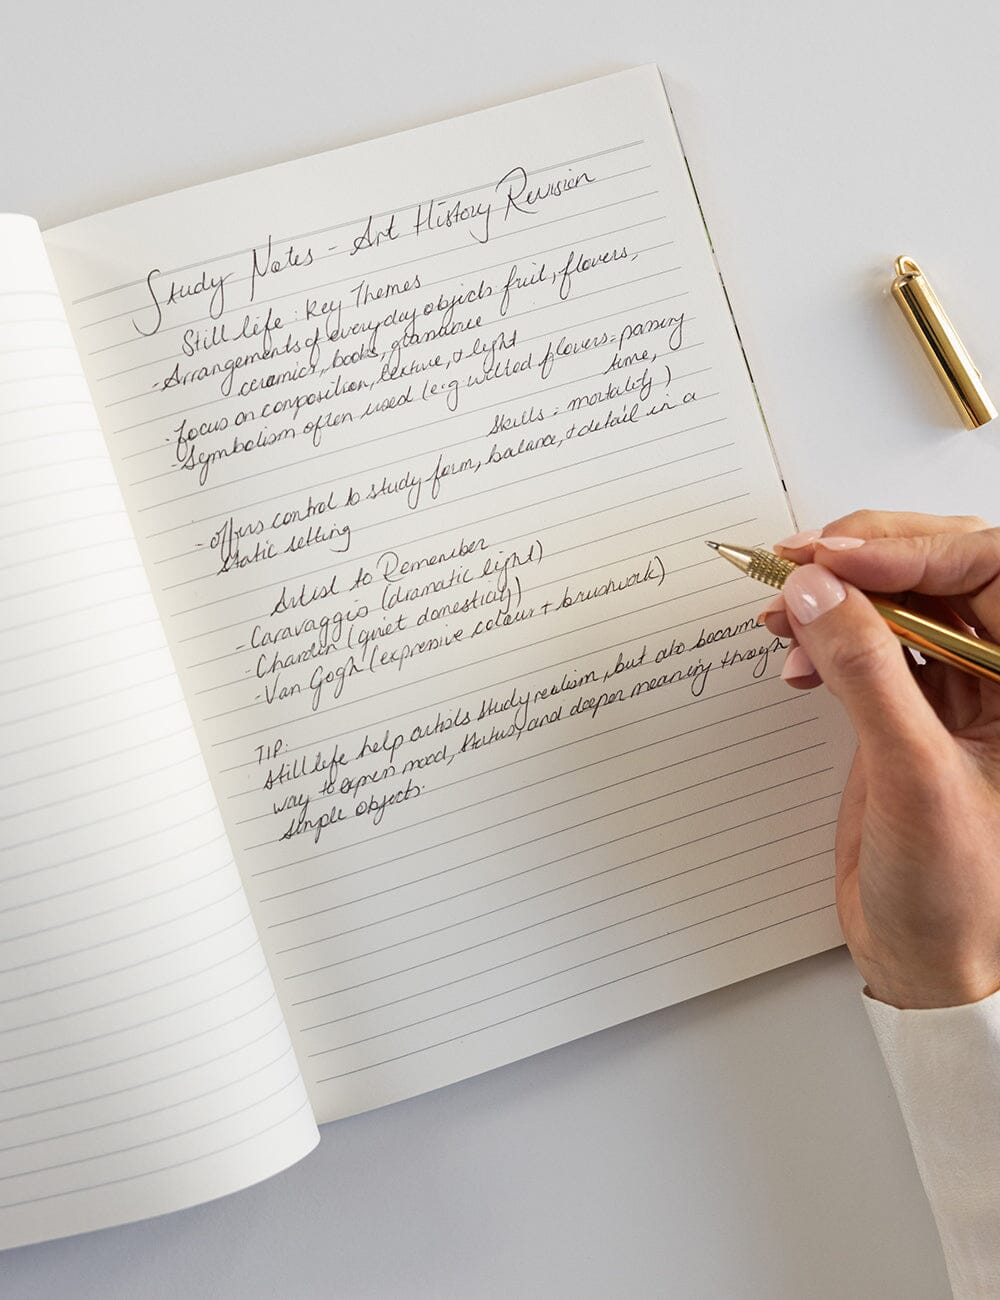 Study Notes - Art History Revision
Still life : Key Themes
- Arrangements of everyday objects fruit, flowers,
ceramics, books, glassware
- focus on composition, texture, & light
- Symbolism often used (e.g wilted flowers = passing
time,
Skills = mortality)
- offers control to study form, balance, & detail in a
static setting
Artist to Remember
- Caravaggio (dramatic light)
- Chardin (quiet domesticity)
- Van Gogh (expressive colour + brushwork)
TIP:
Still life help artists study realism, but also became
way to express mood, status, and deeper meaning through
simple objects.